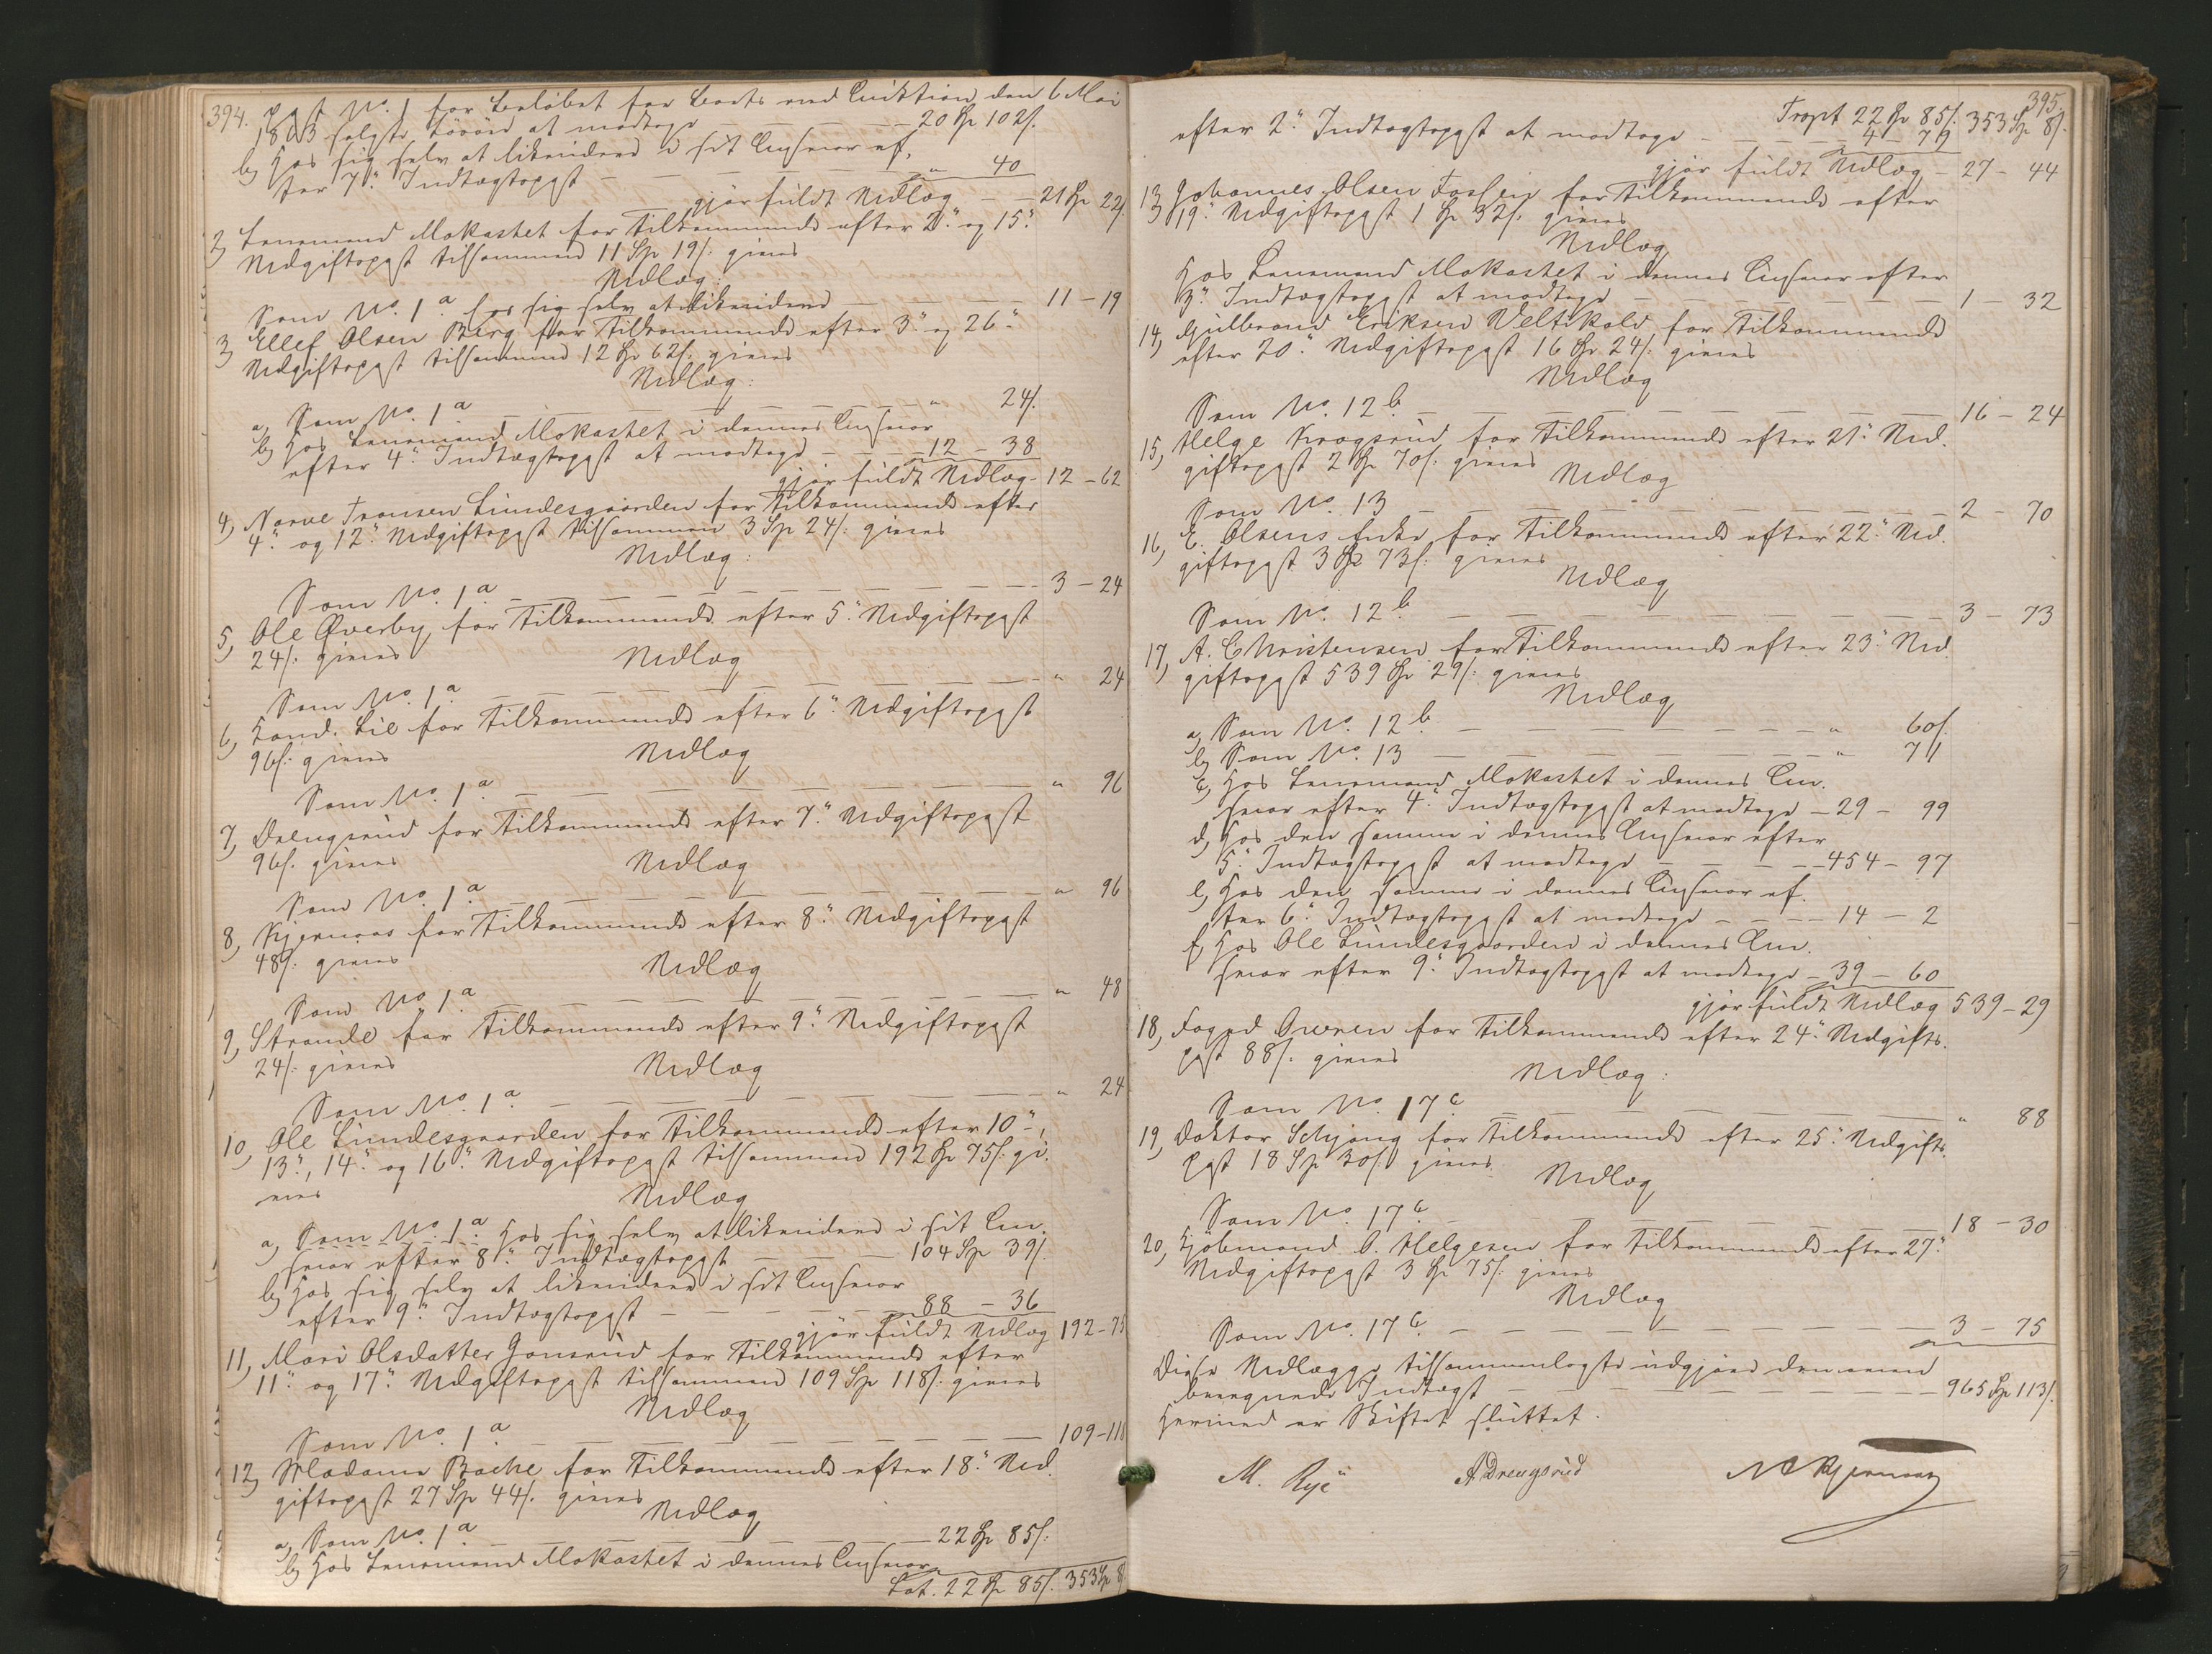 394.
post No. 1 for Beløbet for Boets ved Auktion den 6 Mai
1863 solgte Løsøre at modtage — 20 Sp 102 s.
b, Hos sig selv at likvidere i sit Ansvar ef-
ter 7.de Indtægtspost — " 40
gjør fuldt Udlæg — 21 Sp 22 s.
2, Lensmand Mokastet for Tilkommende efter 2.den og 15.de
Udgiftspost tilsammen 11 Sp 19 s. gives
Udlæg:
Som No. 1 a hos sig selv at likvidere — 11 – 19
3, Ellef Olsen Berg for Tilkommende efter 3.die og 26.de
Udgiftspost tilsammen 12 Sp 62 s. gives
Udlæg:
a, Som No. 1 a — " 24 s.
b, Hos Lensmand Mokastet i dennes Ansvar
efter 4.de Indtægtspost at modtage — 12 – 38
gjør fuldt Udlæg – 12 – 62
4, Narve Transen Lundesgaarden for Tilkommende efter
4.de og 12.de Udgiftspost tilsammen 3 Sp 24 s. gives
Udlæg:
Som No. 1 a — 3 – 24
5, Ole Øverby for Tilkommende efter 5.te Udgiftspost
24 s. gives
Udlæg
Som No. 1 a — " 24
6, Kand. Lie for Tilkommende efter 6.te Udgiftspost
96 s. gives
Udlæg
Som No. 1 a — " 96
7, Drengsrud for Tilkommende efter 7.de Udgiftspost
96 s. gives
Udlæg
Som No. 1 a — " 96
8, Kjernaas for Tilkommende efter 8.de Udgiftspost
48 s. gives
Udlæg
Som No. 1 a — " 48
9, Strande for Tilkommende efter 9.de Udgiftspost
24 s. gives
Udlæg
Som No. 1 a — " 24
10, Ole Lundesgaarden for Tilkommende efter 10.de,
13.de, 14.de og 16.de Udgiftspost tilsammen 192 Sp 75 s. gi-
ves
Udlæg
a, Som No. 1 a Hos sig selv at likvidere i sit An-
svar efter 8.de Indtægtspost — 104 Sp 39 s.
b, Hos sig selv at likvidere i sit Ansvar
efter 9.de Indtægtspost — 88 – 36
gjør fuldt Udlæg 192 – 75
11, Mari Olsdatter Gonsrud for Tilkommende efter
11.te og 17.de Udgiftspost tilsammen 109 Sp 118 s. gives
Udlæg
Som No. 1 a — 109 – 118
12, Madame Bache for Tilkommende efter 18.de Ud-
giftspost 27 Sp 44 s. gives
Udlæg
a, Som No. 1 a — 22 Sp 85 s.
b, Hos Lensmand Mokastet i dennes Ansvar
Lat. 22 Sp 85 s. 353 Sp 8
395.
Trspt 22 Sp 85 s. 353 Sp 8 s.
efter 2.den Indtægtspost at modtage — 4 – 79
gjør fuldt Udlæg – 27 – 44
13, Johannes Olsen Fossen for Tilkommende efter
19.de Udgiftspost 1 Sp 32 s. gives
Udlæg
Hos Lensmand Mokastet i dennes Ansvar efter
3.die Indtægtspost at modtage — 1 – 32
14, Gulbrand Eriksen Veltikold for Tilkommende
efter 20.de Udgiftspost 16 Sp 24 s. gives
Udlæg
Som No. 12 b. — 16 – 24
15, Helge Krogsrud for Tilkommende efter 21.de Ud-
giftspost 2 Sp 70 s. gives
Udlæg
Som No. 13 — 2 – 70
16, E. Olsens Enke for Tilkommende efter 22.de Ud-
giftspost 3 Sp 73 s. gives
Udlæg
Som No. 12 b — 3 – 73
17, A. Christensen for Tilkommende efter 23.de Ud-
giftspost 539 Sp 29 s. gives
Udlæg
a, Som No. 12 b. — " 60 s.
b, Som No. 13 — " 71
c, Hos Lensmand Mokastet i dennes An-
svar efter 4.de Indtægtspost at modtage – 29 – 99
d, Hos den samme i dennes Ansvar efter
5.te Indtægtspost at modtage — 454 – 97
e, Hos den samme i dennes Ansvar ef-
ter 6.te Indtægtspost at modtage — 14 – 2
f, Hos Ole Lundesgaarden i dennes An-
svar efter 9.de Indtægtspost at modtage – 39 – 60
gjør fuldt Udlæg 539 – 29
18, Foged for Tilkommende efter 24.de Udgifts-
post 88 s. gives
Udlæg:
Som No. 17 c. — " 88
19, Doktor Schjøng for Tilkommende efter 25.de Udgifts-
post 18 Sp 30 s. gives
Udlæg
Som No. 17 c. — 18 – 30
20, Kjøbmand O. Helgesen for Tilkommende efter 27.de
Udgiftspost 3 Sp 75 s. gives
Udlæg
Som No. 17 c. — 3 – 75
Disse Udlægge tilsammenlagte udgjøre den oven
beregnede Indtægt — 965 Sp 113 s.
Hermed er Skiftet sluttet.
M. Rye A. Drengsrud N C Kjernaas